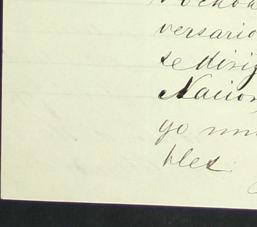 versario
se dirig
Nacion
go mu
bles